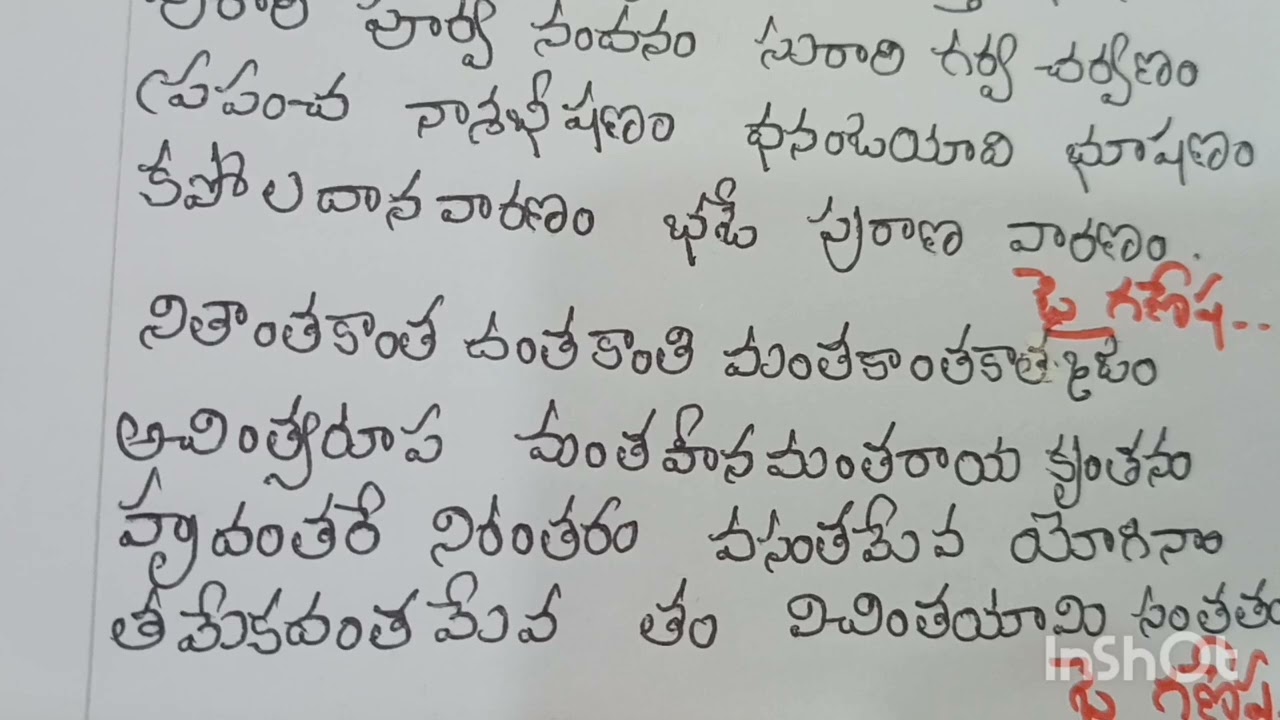 పురారి పూర్వ నందనం సురారి గర్వ చర్వణం
ప్రపంచ నాశభీషణం ధనంజయాది భూషణం
కపోల దాన వారణం భజే పురాణ వారణం.
జై గణేష..
నితాంతకాంత దంతకాంతి మంతకాంతకాత్మజం
అచింత్యరూప మంతహీనమంతరాయ కృంతనం
హృదంతరే నిరంతరం వసంతమేవ యోగినాం
తమేకదంతమేవ తం విచింతయామి సంతతం
InShOt
జై గణేష